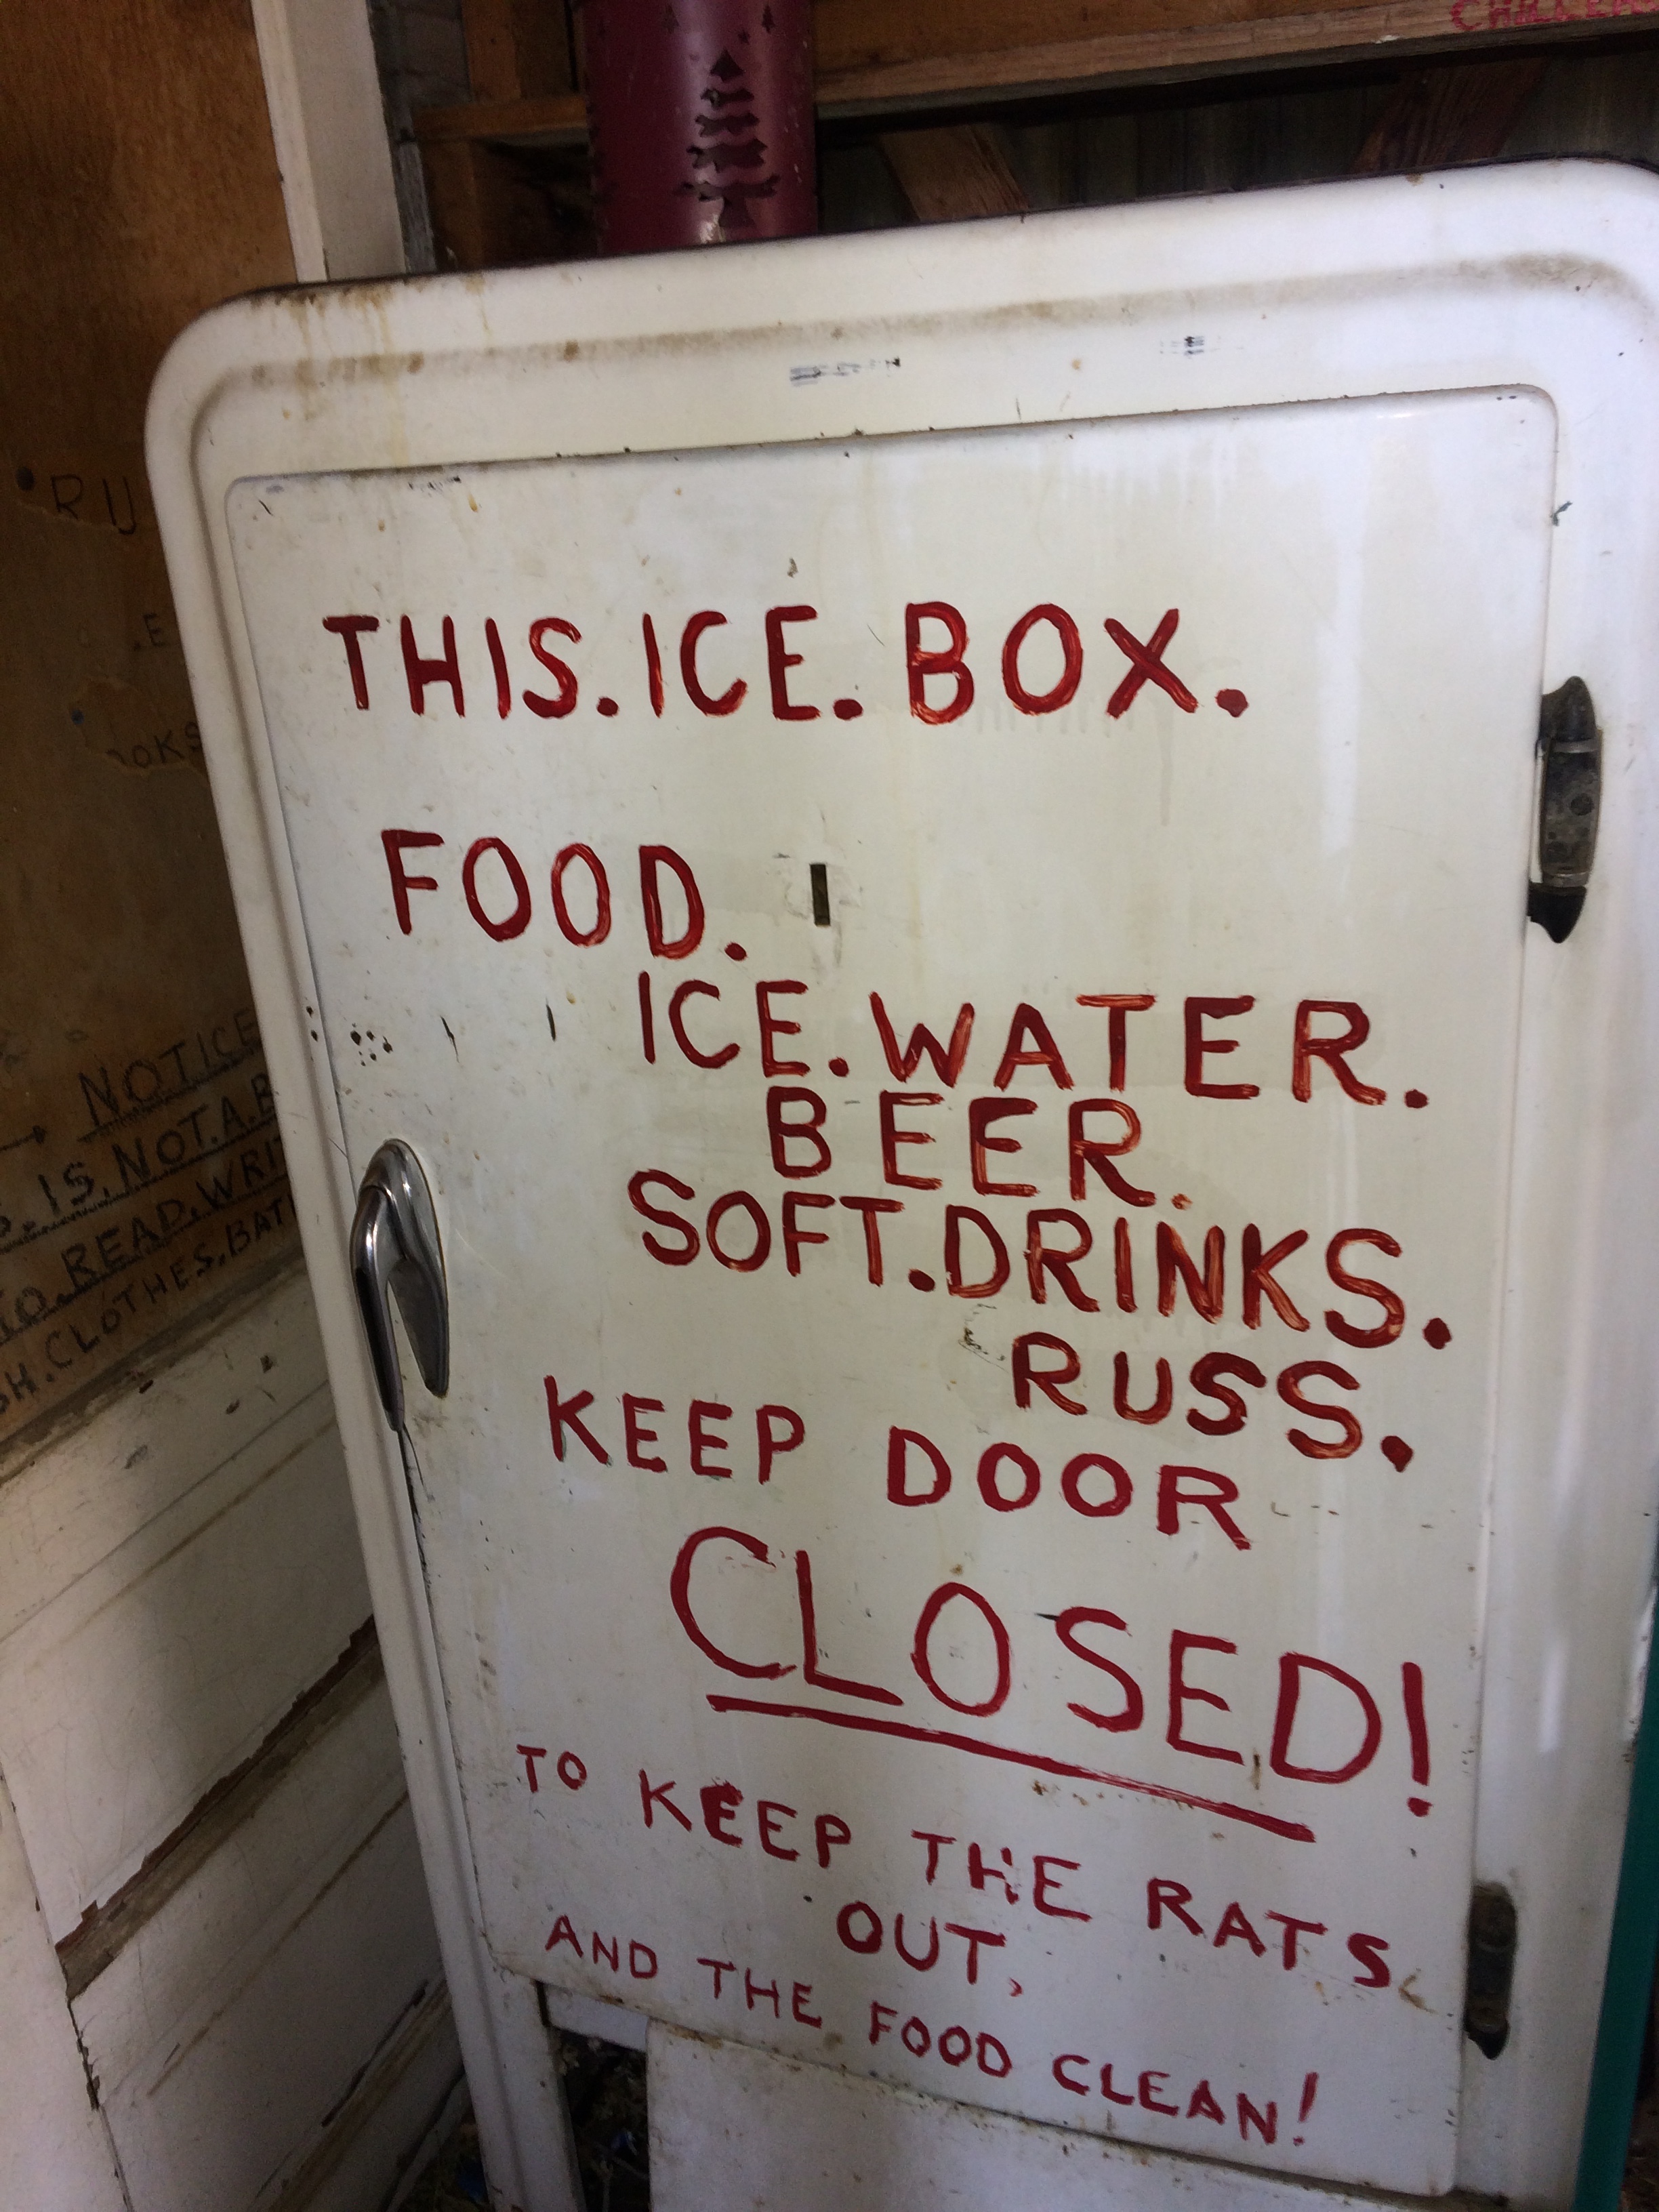 THIS.ICE.BOX.
FOOD.
ICE.WATER.
BEER.
SOFT.DRINKS.
RUSS.
KEEP DOOR
CLOSED!
TO KEEP THE RATS
OUT,
AND THE FOOD CLEAN!
NOTICE
IS.NOT.A.B
TO.READ.WRI
SH.CLOTHES.BAT